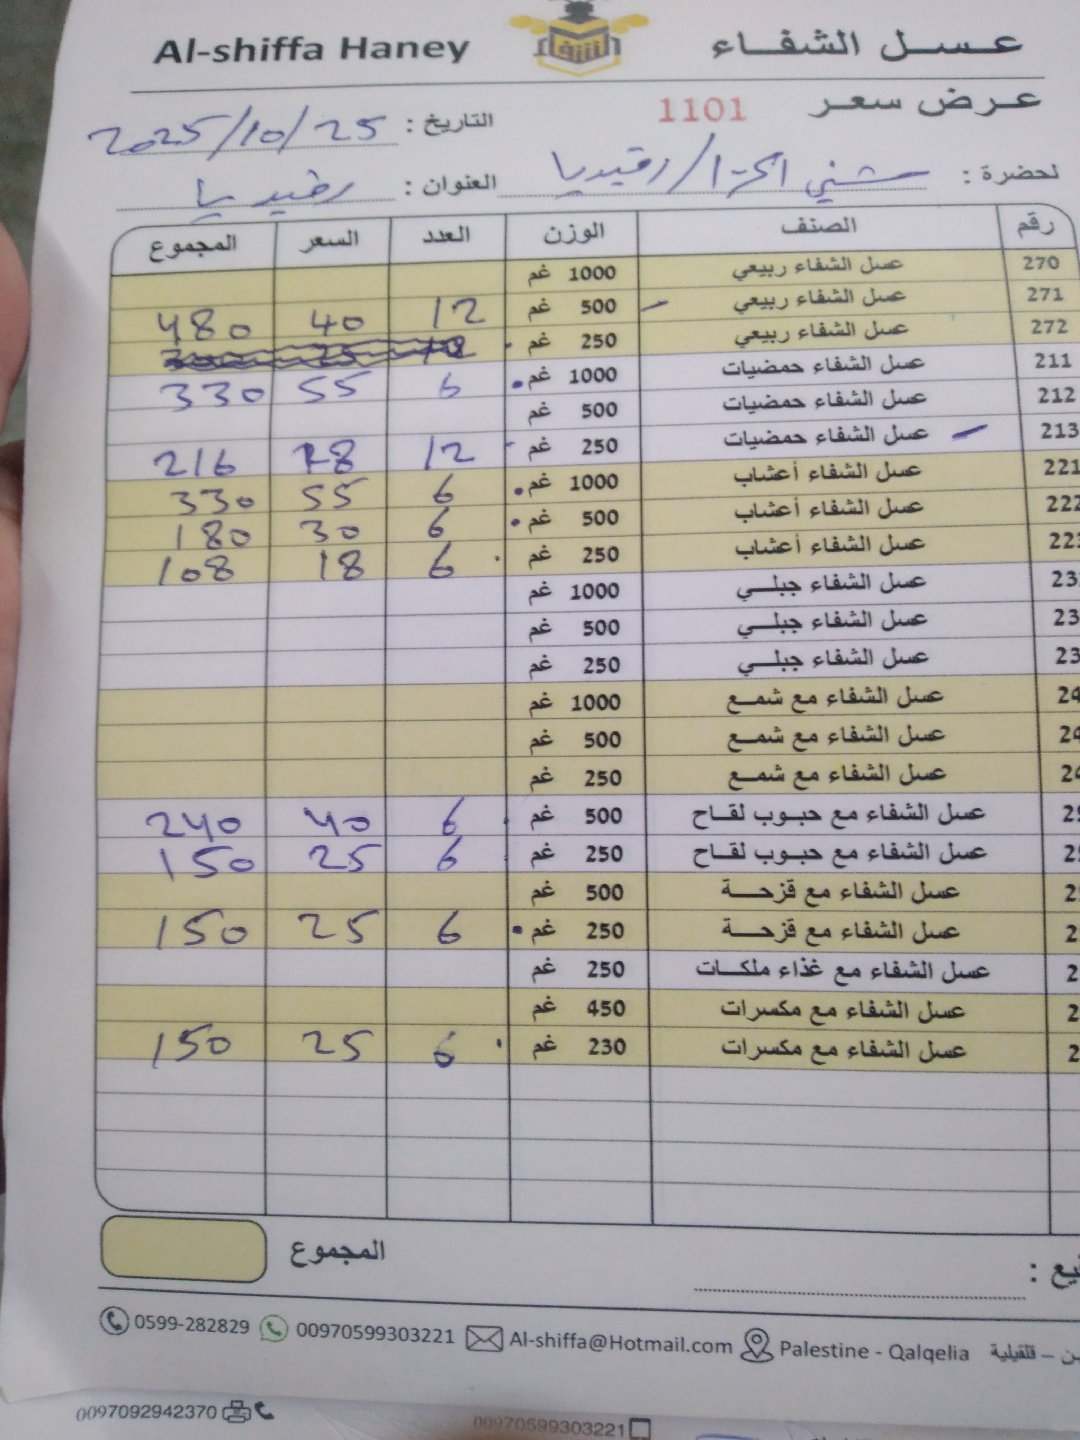 عسل الشفاء Al-shiffa Haney
الشفاء
عرض سعر 1101 التاريخ : 2025/10/25
لحضرة : شني اكسترا/رفيديا العنوان : رفيديا
رقم الصنف الوزن العدد السعر المجموع
270 عسل الشفاء ربيعي 1000 غم
271 عسل الشفاء ربيعي 500 غم 12 40 480
272 عسل الشفاء ربيعي 250 غم
211 عسل الشفاء حمضيات 1000 غم 6 55 330
212 عسل الشفاء حمضيات 500 غم
213 عسل الشفاء حمضيات 250 غم 12 18 216
221 عسل الشفاء أعشاب 1000 غم 6 55 330
222 عسل الشفاء أعشاب 500 غم 6 30 180
223 عسل الشفاء أعشاب 250 غم 6 18 108
23 عسل الشفاء جبلـــي 1000 غم
23 عسل الشفاء جبلـــي 500 غم
23 عسل الشفاء جبلـــي 250 غم
24 عسل الشفاء مع شمـــع 1000 غم
24 عسل الشفاء مع شمـــع 500 غم
24 عسل الشفاء مع شمـــع 250 غم
25 عسل الشفاء مع حبـوب لقـاح 500 غم 6 40 240
25 عسل الشفاء مع حبـوب لقـاح 250 غم 6 25 150
2 عسل الشفاء مع قزحـــة 500 غم
2 عسل الشفاء مع قزحـــة 250 غم 6 25 150
2 عسل الشفاء مع غذاء ملكـــات 250 غم
2 عسل الشفاء مع مكسرات 450 غم
2 عسل الشفاء مع مكسرات 230 غم 6 25 150
المجموع
0599-282829 00970599303221 Al-shiffa@Hotmail.com Palestine - Qalqelia قلقيلية
0097092942370 00970599303221